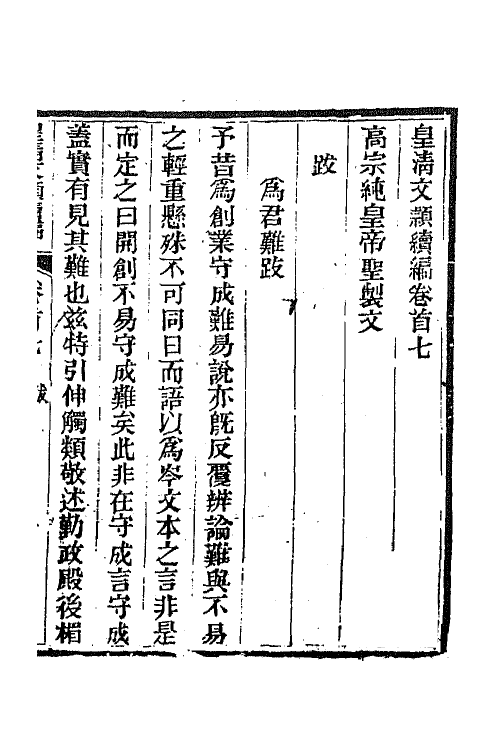 皇淸文穎續編卷首七
高宗純皇帝聖製文
跋
爲君難跋
予昔爲創業守成難易說亦旣反覆辨論難與不易
之輕重懸殊不可同日而語以爲岑文本之言非是
而定之曰開創不易守成難矣此非在守成言守成
蓋實有見其難也茲特引伸觸類敬述勤政殿後楣